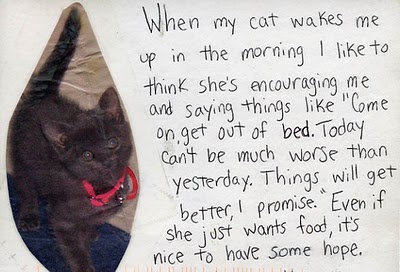 When my cat wakes me
up in the morning I like to
think she's encouraging me
and saying things like "Come
on, get out of bed. Today
can't be much worse than
yesterday. Things will get
better, I promise." Even if
she just wants food, it's
nice to have some hope.